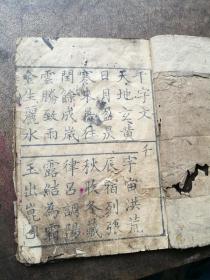 千字文
千
天地玄黃
宇宙洪荒
日月盈昃
辰宿列張
寒來暑往
秋收冬藏
閏餘成歲
律呂調陽
雲騰致雨
露結為霜
金生麗水
玉出崑